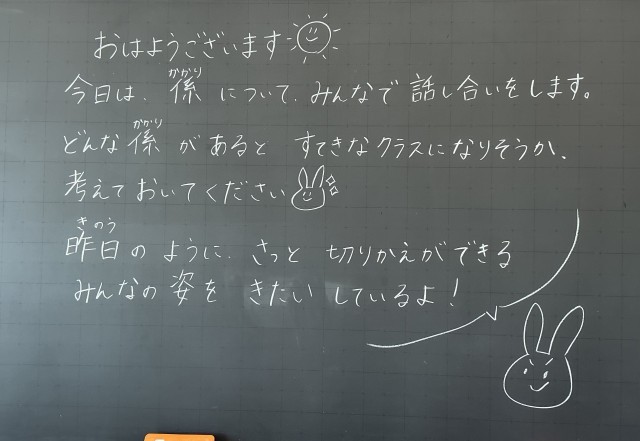 おはようございます
今日は、係について、みんなで話し合いをします。
かかり
どんな係があると すてきなクラスになりそうか、
かかり
考えておいてください
昨日のように、さっと 切りかえができる
きのう
みんなの姿を きたいしているよ!